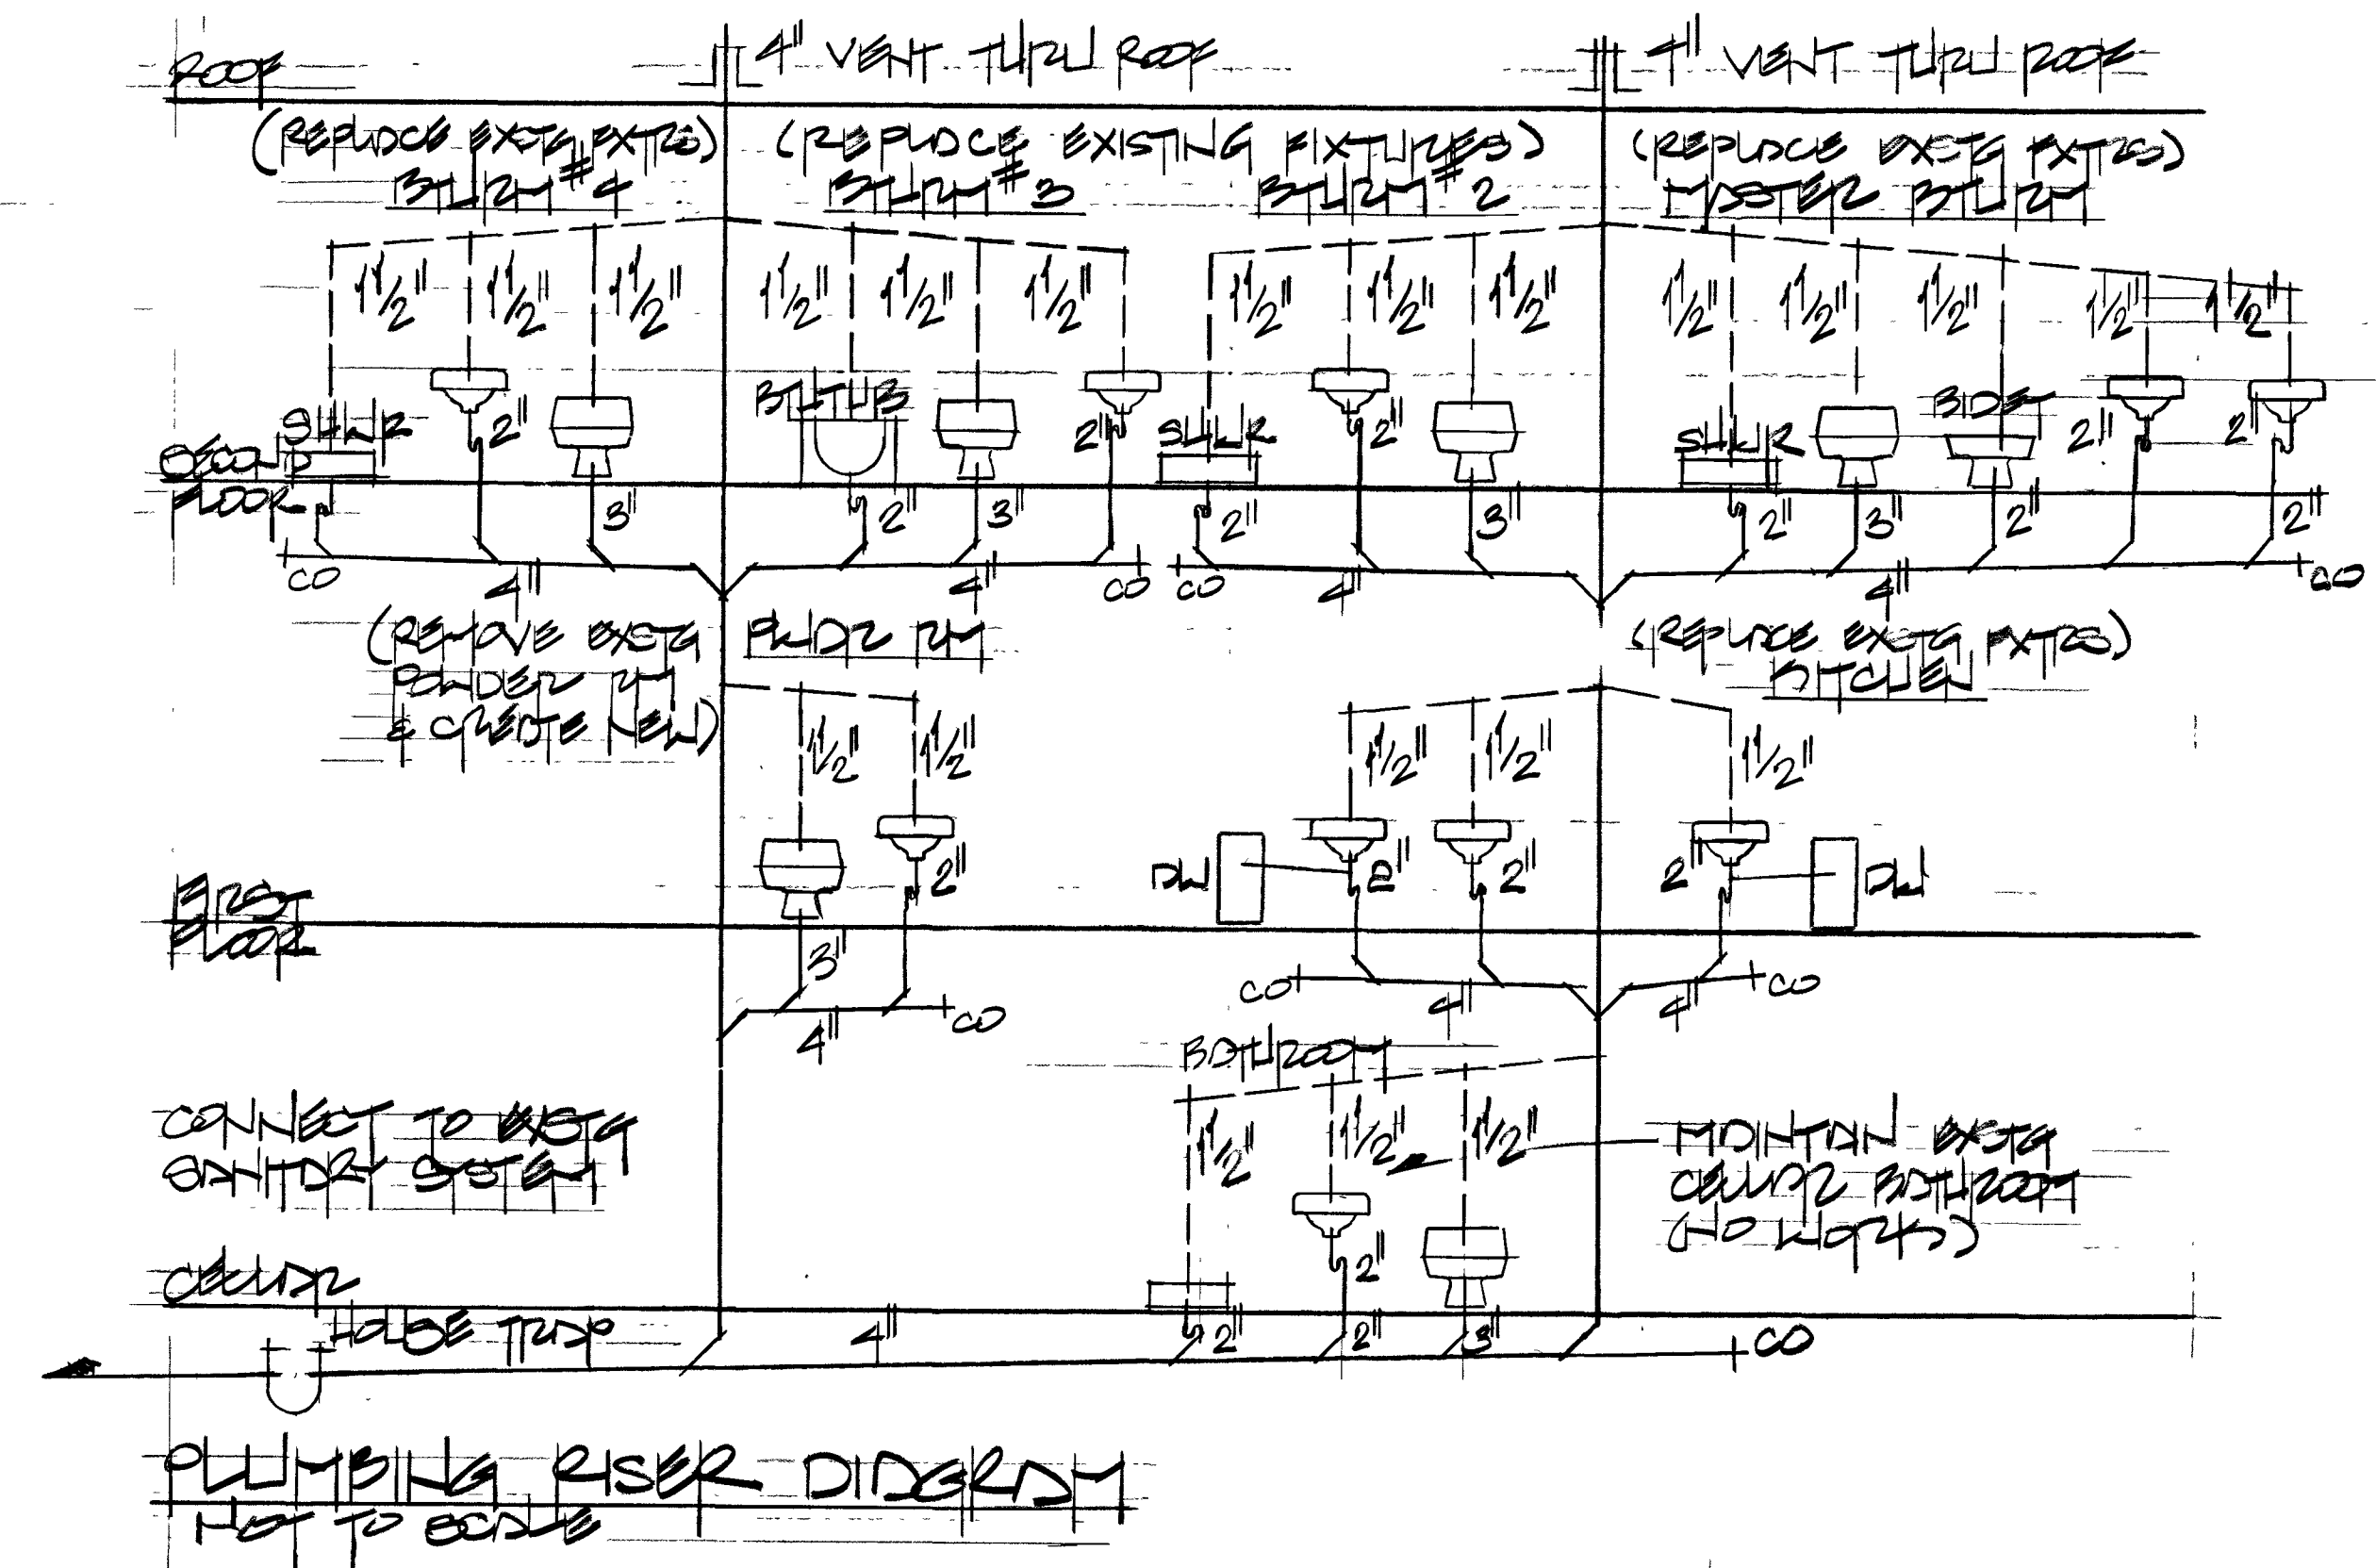 ROOF
4" VENT THRU ROOF
4" VENT THRU ROOF
(REPLACE EXSTG FXTRS)
BTHRM #4
(REPLACE EXISTING FIXTURES)
BTHRM #3
BTHRM #2
(REPLACE EXSTG FXTRS)
MASTER BTHRM
1 1/2" 1 1/2" 1 1/2" 1 1/2" 1 1/2" 1 1/2" 1 1/2" 1 1/2" 1 1/2" 1 1/2" 1 1/2" 1 1/2" 1 1/2" 1 1/2"
SHWR 2" BTHTUB 2" SHWR 2" SHWR BIDET 2" 2"
SECOND
FLOOR
3" 2" 3" 2" 3" 2" 3" 2" 2"
CO 4" 4" CO CO 4" 4" CO
(REMOVE EXSTG
POWDER RM
& CREATE NEW)
PWDR RM
(REPLACE EXSTG FXTRS)
KITCHEN
1 1/2" 1 1/2" 1 1/2" 1 1/2" 1 1/2"
2" DW 2" 2" 2" DW
FIRST
FLOOR
3"
4" CO CO 4" 4" CO
BATHROOM
1 1/2" 1 1/2" 1 1/2"
CONNECT TO EXSTG
SANITARY SYSTEM
MAINTAIN EXSTG
CELLAR BATHROOM
(NO WORKS)
2"
CELLAR
HOUSE TRAP
4" 2" 2" 3" CO
PLUMBING RISER DIAGRAM
NOT TO SCALE